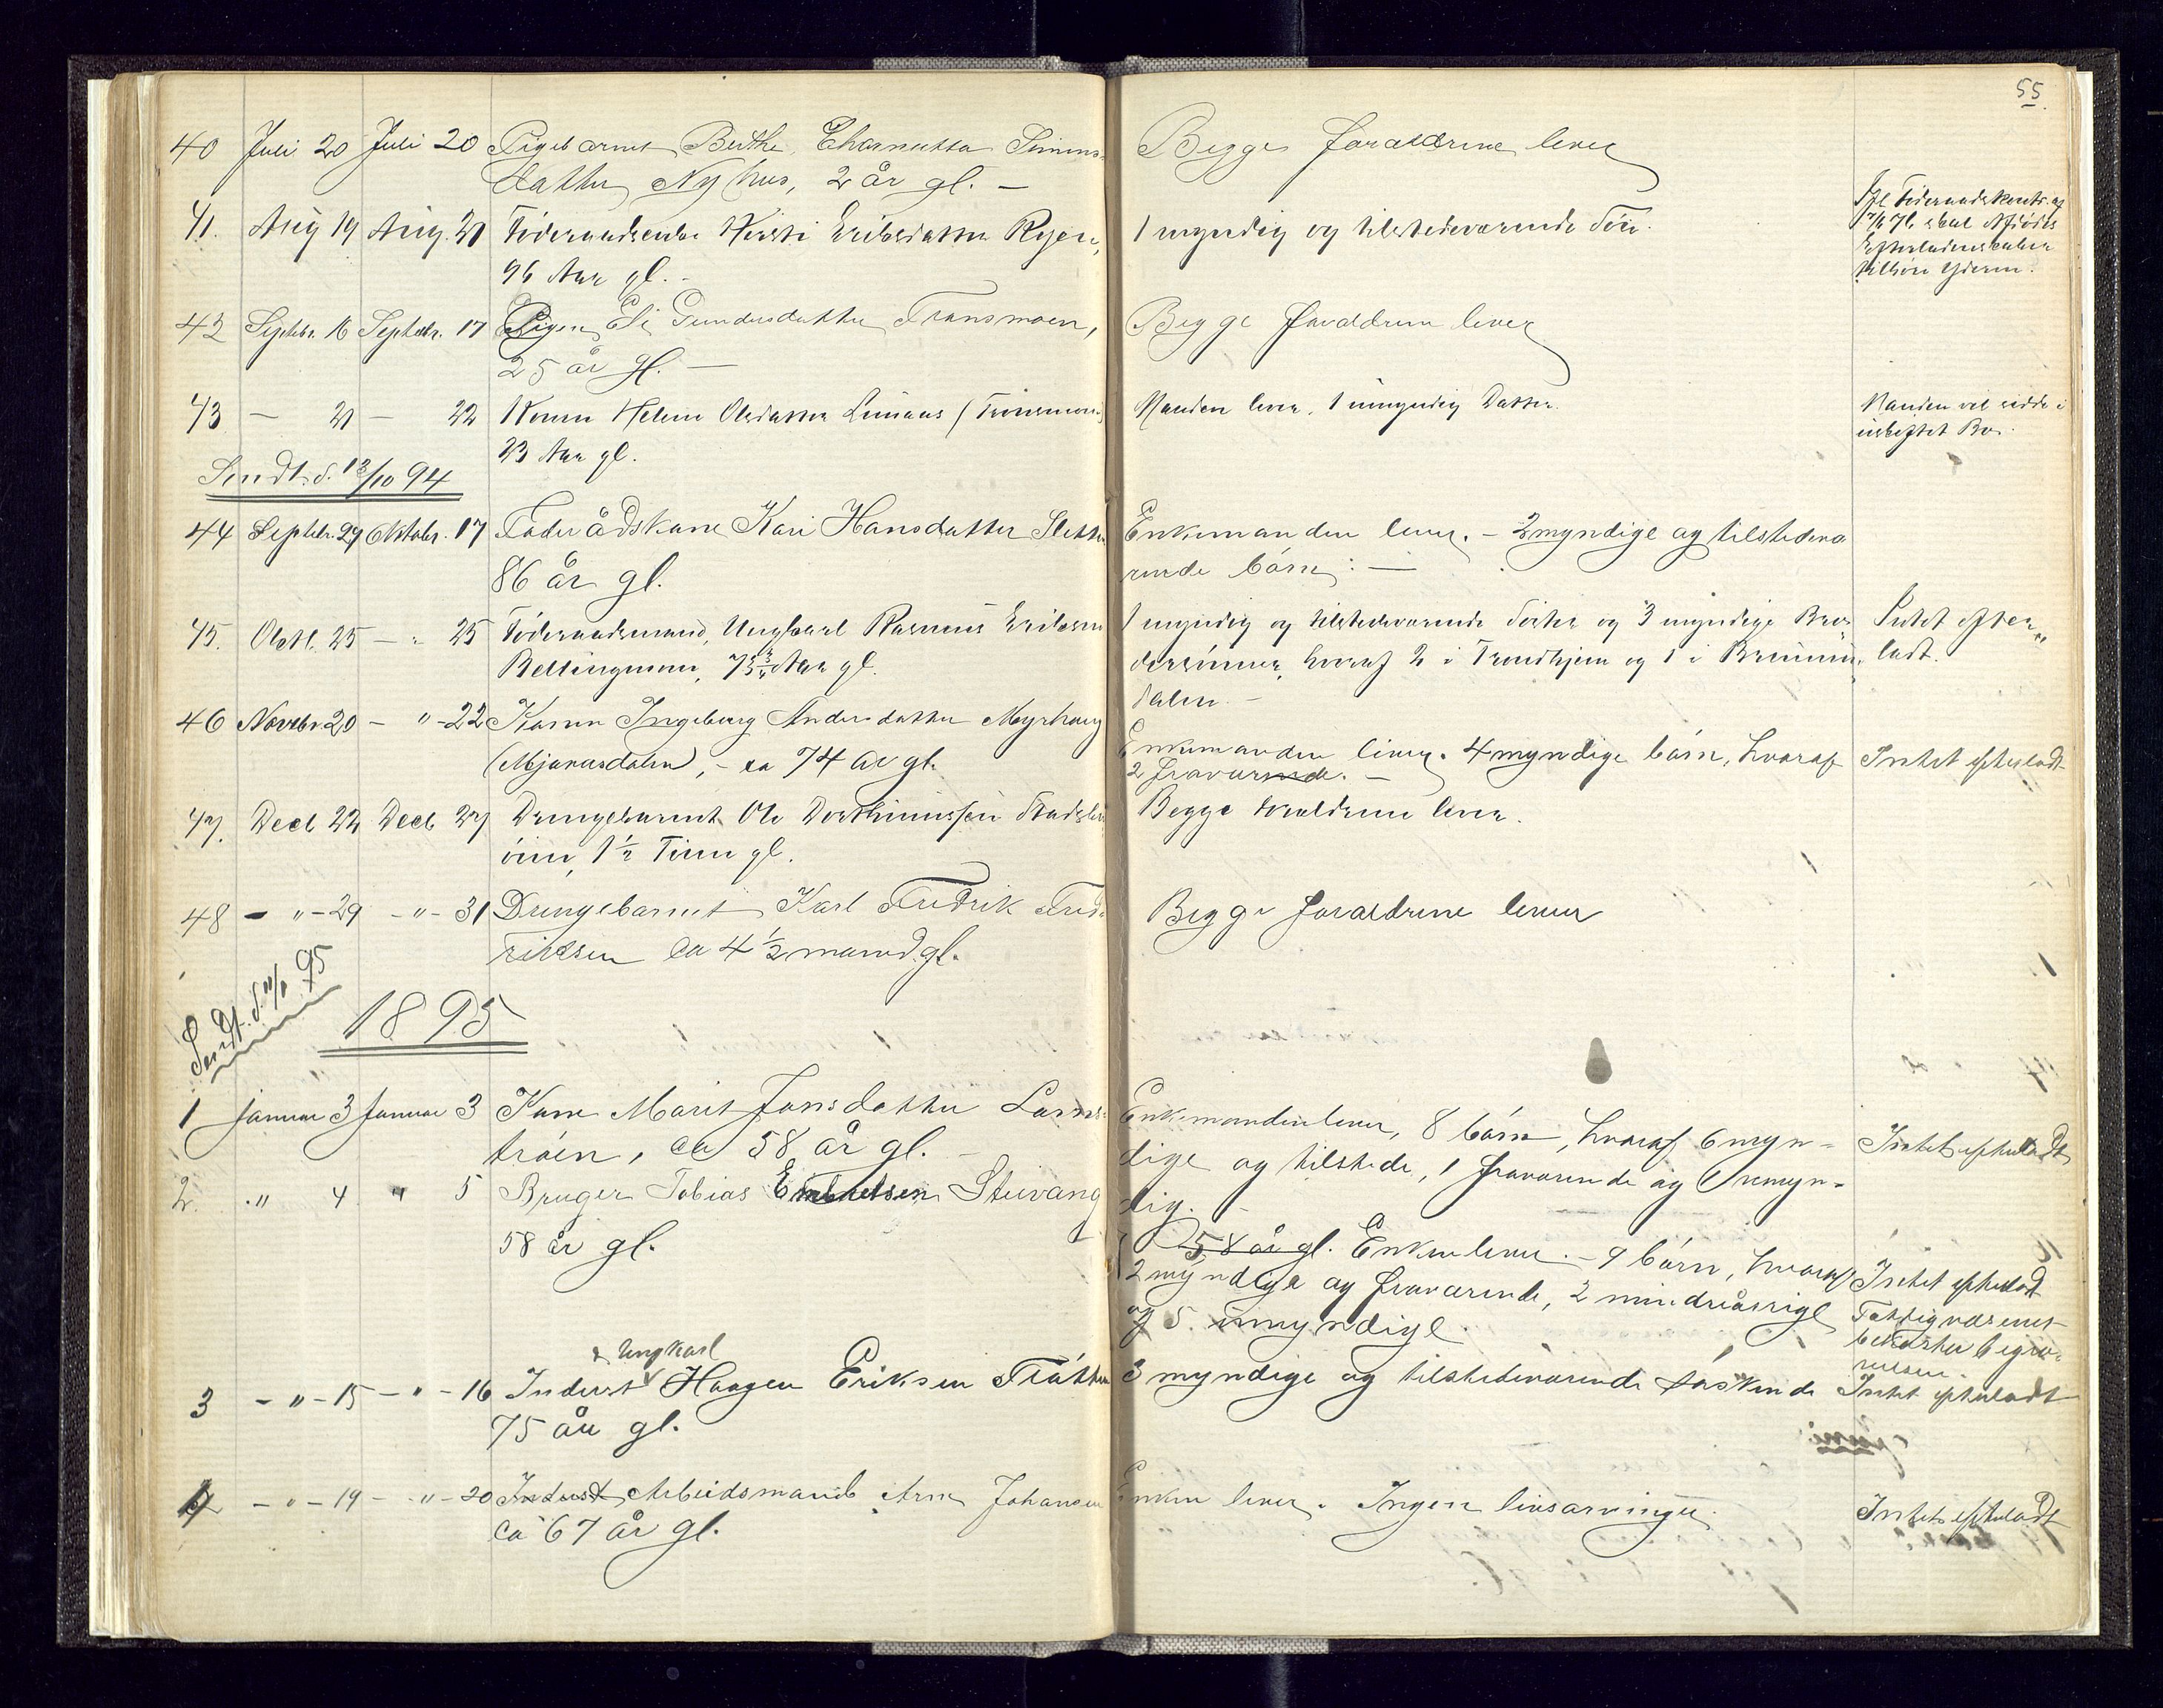 55.
40 Juli 20 Juli 20 Pigebarnet Berthe Simens- Begge forældrene lever
datter Nyhus, 2 år gl. —
41. Aug 19 Aug. 21 Föderaadsenke Kirsti Eriksdatter Ryen, 1 myndig og tilstedeværende Sön.
96 Aar gl. –
Ifl. Föderaadskontr. af
skal Afdödes
Efterladenskaber
tilhöre Yderen.
42 Septbr. 16 Septbr. 17 Pigen Eli Pedersdatter Transmoen, Begge forældrene lever
25 år gl. —
43 — 21 — 22 Konen Helene Olsdatter 23 Aar gl. Manden lever, 1 umyndig Datter. Manden vil sidde i
uskiftet Bo.
Sendt d. 13/10 94
44 Septbr. 29 Oktobr. 17 Föderådskone Kari Hansdatter Enkemanden lever. – 2 myndige og tilstedevæ
86 år gl. rende börn. —
45. Octb. 25 – " 25 Föderaadsmand, Ungkarl Rasmus Eriksen 1 myndig og tilstedeværende Söster og 3 myndige Bro- Intet efter-
Bellingmoen, 75 3/4 Aar gl. dersönner, hvoraf 2 i Trondhjem og 1 i ladt.
dalen. –
46 Novbr. 20 – " – 22 Konen Ingeborg Andersdatter Myrhaug Enkemanden lever. 4 myndige börn, hvoraf Intet efterladt
(Mjovasdalen), – ca 74 år gl. 2 fraværende. –
47. Decb 22 Decb 27 Drengebarnet Ole Begge Forældrene lever.
1½ Time gl.
48 – " – 29 – " – 31 Drengebarnet Karl Fredrik Fred- Begge forældrene lever
riksen ca 4½ maaned gl.
Sendt d. 95
1895
1 Januar 3 Januar 3 Kone Marit Jonsdatter Enkemanden lever, 8 börn, hvoraf 6 myn- Intet efterladt
tröen, ca 58 år gl. – dige og tilstede, 1 fraværende og 1 umyn-
dig. –
2. " 4 " 5 Bruger Tobias Stuivang
58 år gl.
58 år gl. Enken lever. – 9 börn, hvoraf Intet efterladt
2 myndige og fraværende, 2 mindreårige Fattigvæsenet
og 5 umyndige. bekoster begra-
velsen.
Ungkarl
3 – " – 15 – " – 16 Inderst Haagen Eriksen 3 myndige og tilstedeværende söskende Intet efterladt
75 år gl.
4 – " – 19 – " – 20 Inderst Arbeidsmand Arne Johansen Enken lever. Ingen livsarvinger. Intet efterladt
ca 67 år gl.